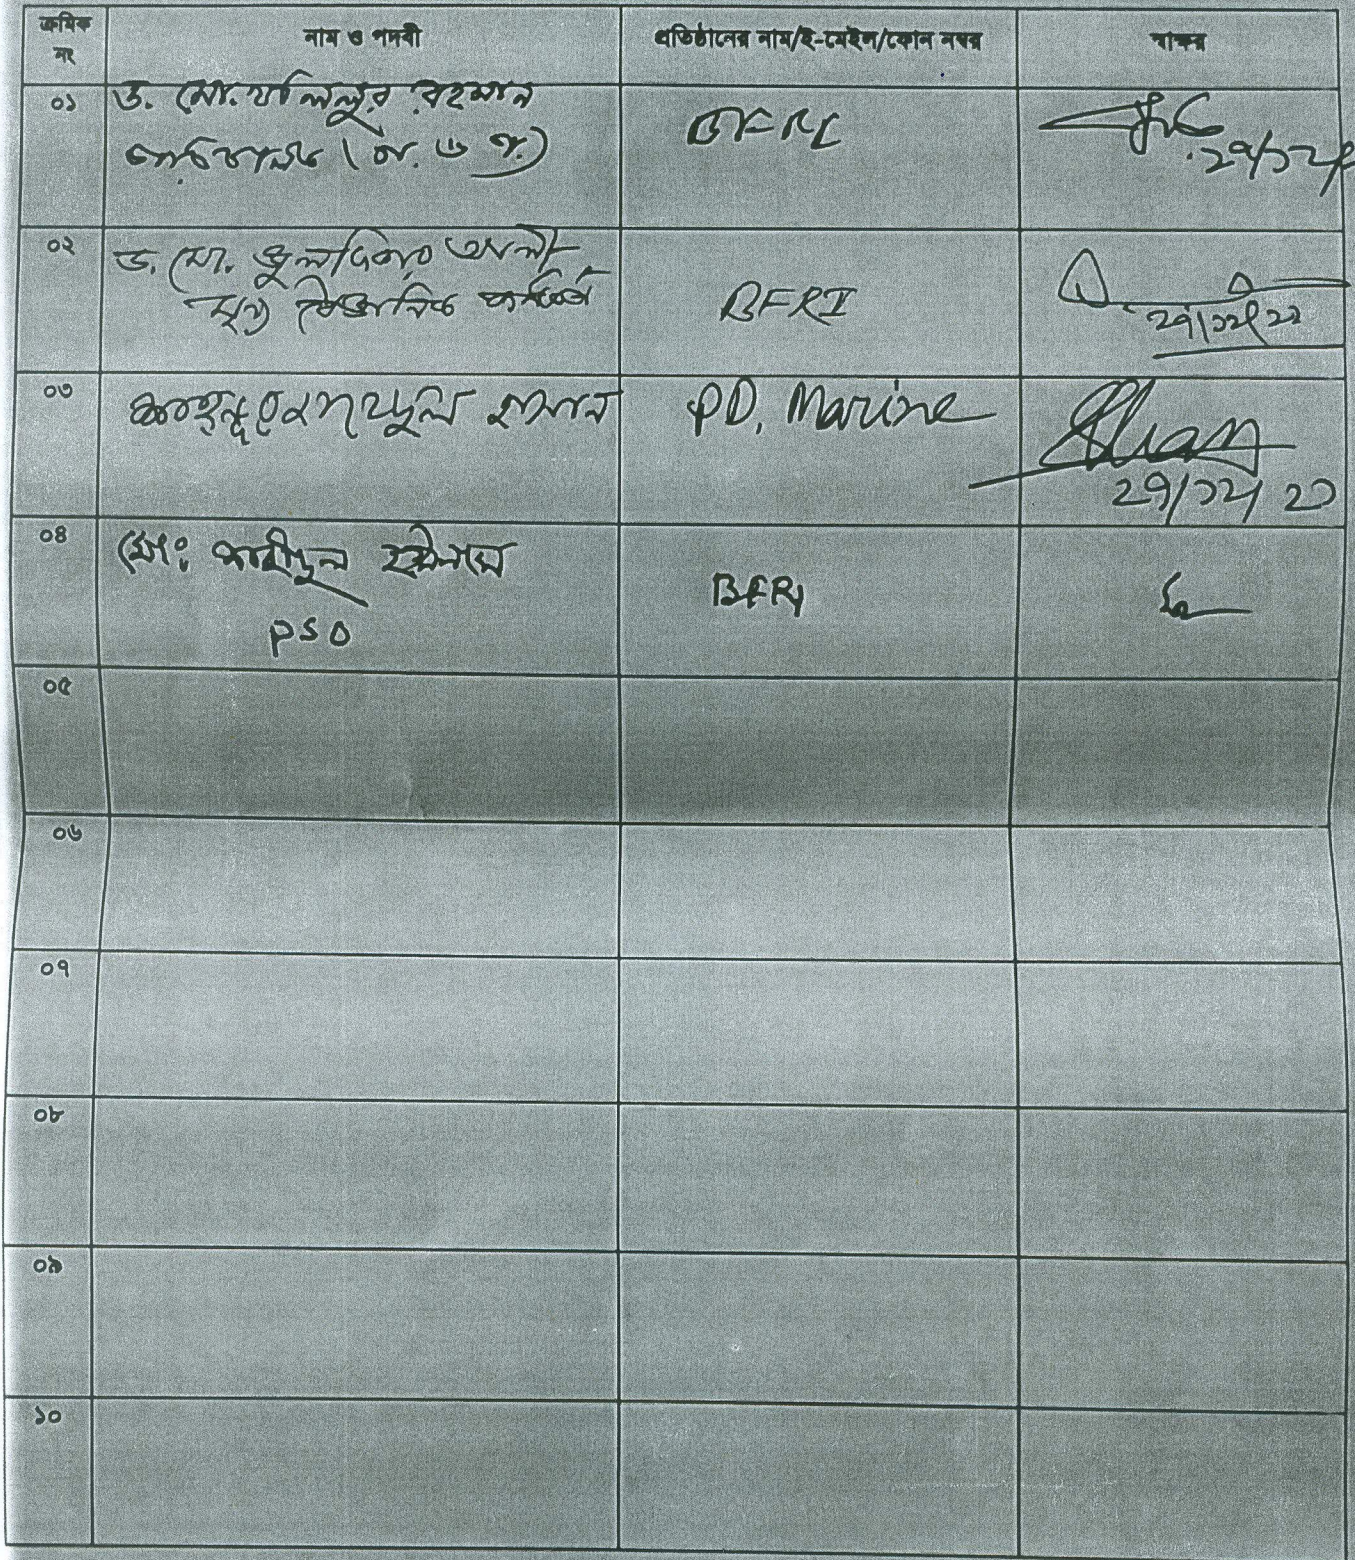 ক্রমিক নং
নাম ও পদবী
প্রতিষ্ঠানের নাম/ই-মেইল/ফোন নম্বর
স্বাক্ষর
০১
ড. মো. খলিলুর রহমান
পরিচালক (প্র. ও অ.)
BFRI
২৭/১২/২
০২
ড. মো. জুলফিকার আলী
মুখ্য বৈজ্ঞানিক কর্মকর্তা
BFRI
২৭/১২/২১
০৩
হাসান
PD, Marine
২৭/১২/২১
০৪
মো:
PSO
BFRI
০৫
০৬
০৭
০৮
০৯
১০